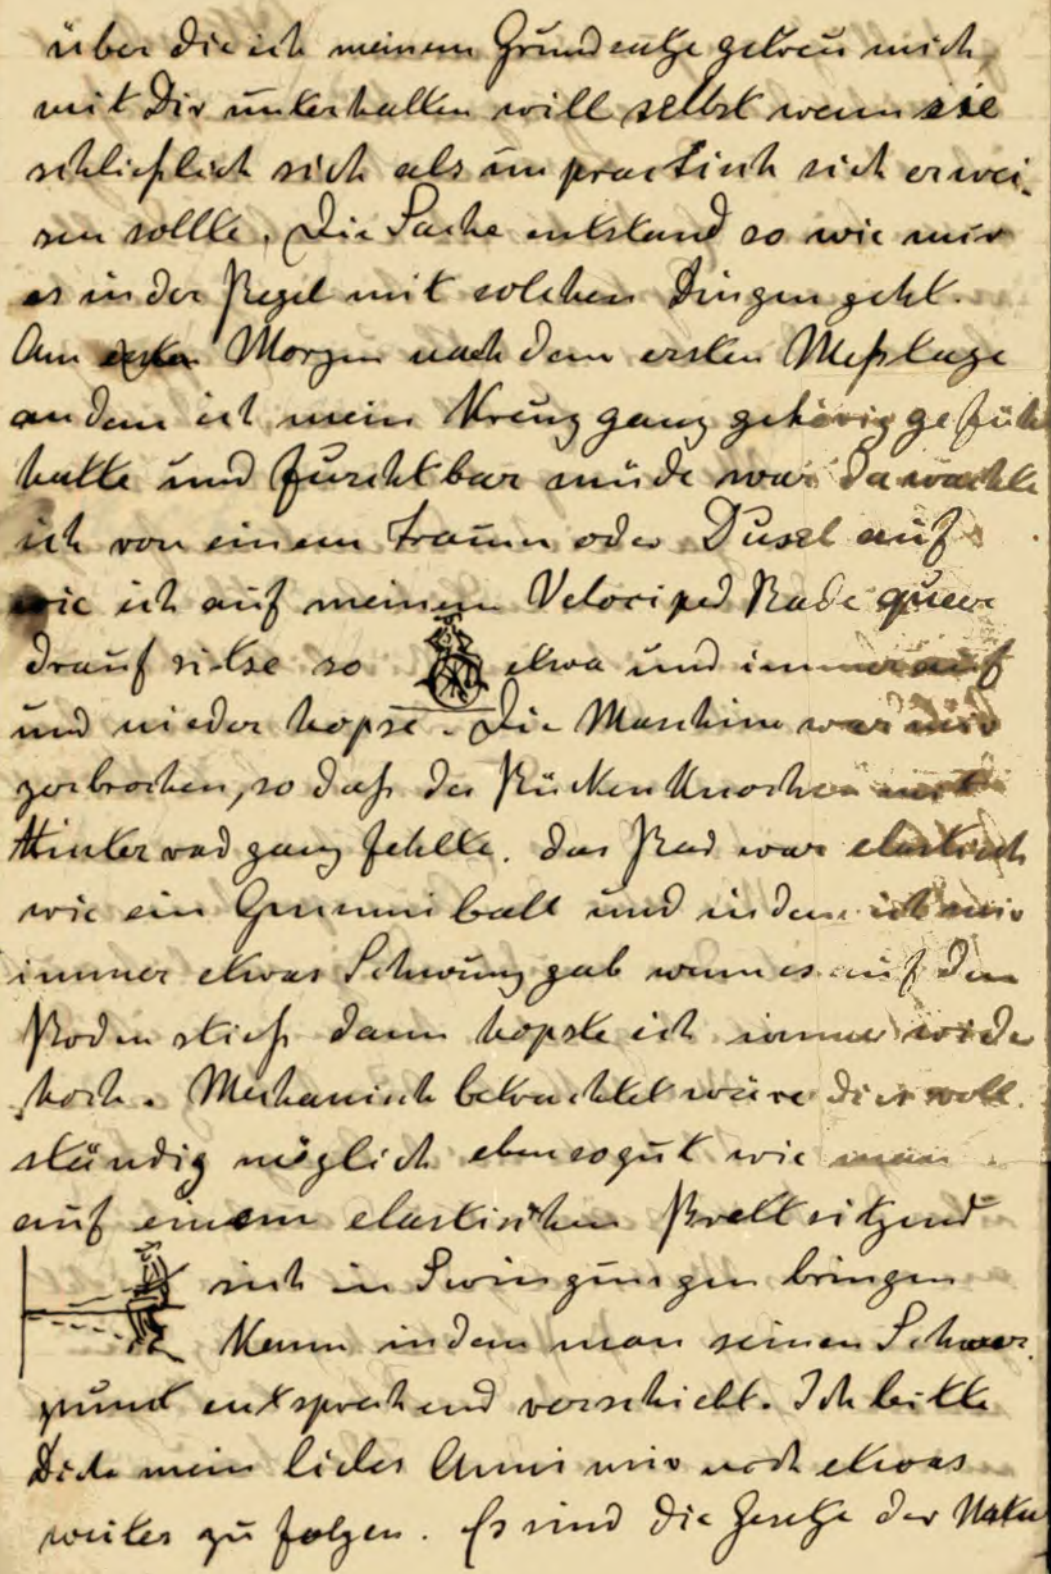 über die ich meinem Grundsatze getreu mich
mit Dir unterhalten will selbst wenn sie
schließlich sich als unpractisch sich erwei-
sen sollte. Die Sache entstand so wie mir
es in der Regel mit solchen Dingen geht.
Am Morgen nach dem ersten Meßtage
an dem ich mein Kreuzgang gehörig gefüh
hatte und furchtbar müde war da wachte
ich von einem Traum oder Dusel auf
wie ich auf meinem Velociped Rade queer
drauf sitze so etwa und immer auf
und nieder hopse. Die Maschine war mir
zerbrochen, so daß der Rückenknochen mit
Hinterrad ganz fehlte. Das Rad war elastisch
wie ein Gummiball und indem ich mir
immer etwas Schwung gab wenn es auf den
Boden stieß dann hopste ich immer wieder
hoch. Mechanisch betrachtet wäre dies voll-
ständig möglich ebensogut wie man
auf einem elastischen Brett sitzend
sich in Swingungen bringen
kann indem man seinen Schwer-
punct entsprechend verschiebt. Ich bitte
Dich mein liebes Anni mir noch etwas
weiter zu folgen. Es sind die Gesetze der Natu